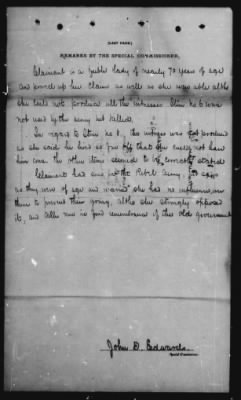 (LAST PAGE.)
REMARKS BY THE SPECIAL COMMISSIONER.
Claimant is a feeble lady of nearly 70 years of age
and proved up her claim as well as she was able altho
she could not produce all the witnesses Item no 6 was
not used by the army but killed.
In regard to Item no 8, the witness was not produced
as she said he lived so far off that she could not have
him come the other items seemed to be correctly stated
Claimant had sons in the Rebel Army, she says
as they were of age and married she had no influence over
them to prevent their going, altho she strongly opposed
it, and talks now in fond remembrance of the old government
John D. Edwards
Special Commissioner.